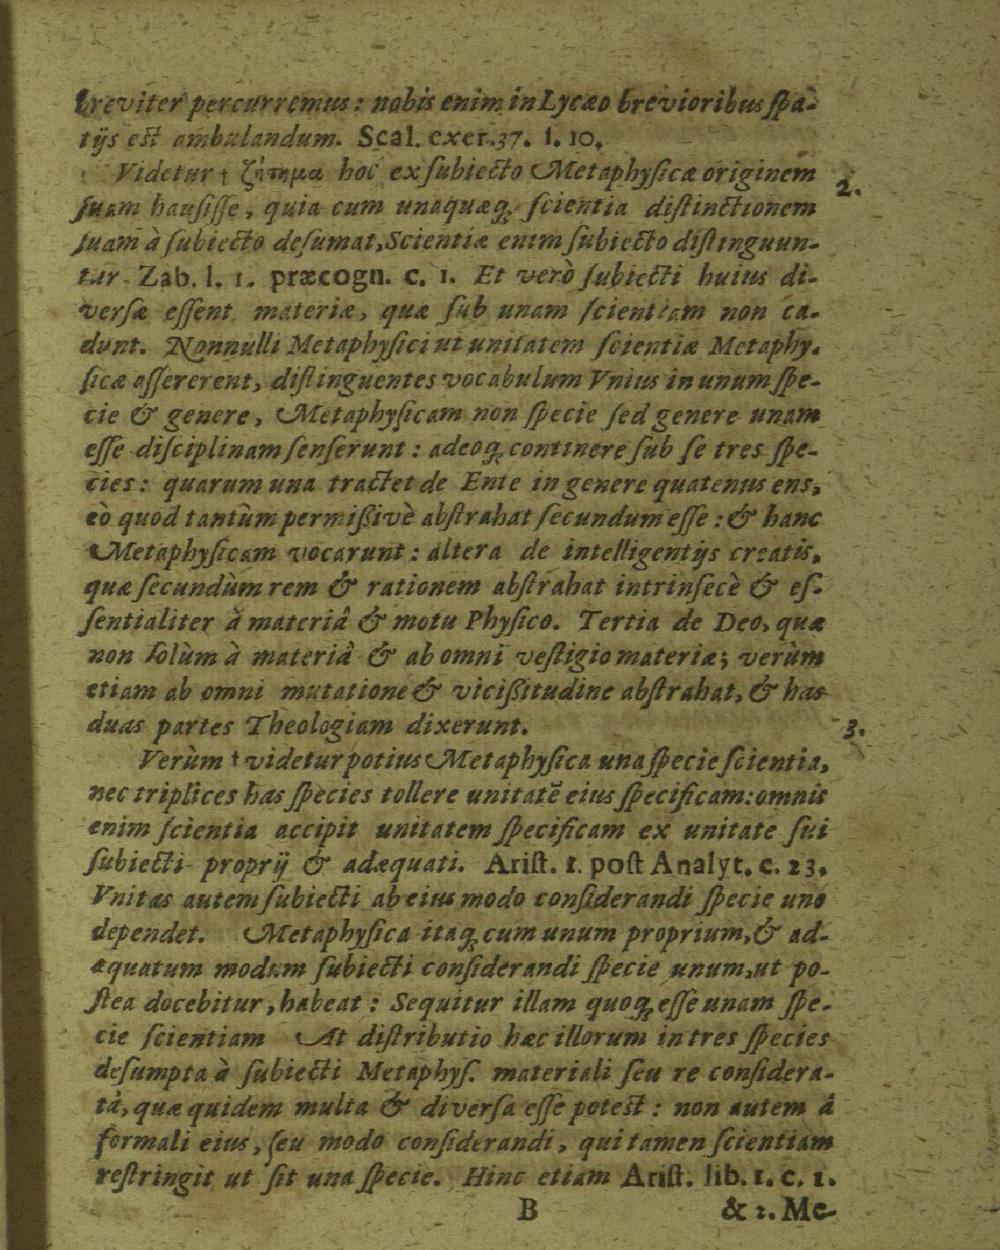 breviter percurremus: nobis enim in Lycæo brevioribus spa-
tijs est ambulandum. Scal. exer. 37. s. 10.
Videtur † ζήτημα hoc ex subiecto Metaphysicæ originem
2.
suam hausisse, quia cum unaquæq; scientia distinctionem
suam à subiecto desumat, Scientiæ enim subiecto distinguun-
tur Zab. l. 1. præcogn. c. 1. Et verò subiecti huius di-
versæ essent materiæ, quæ sub unam scientiam non ca-
dunt. Nonnulli Metaphysici ut unitatem scientiæ Metaphy-
sicæ assererent, distinguentes vocabulum Vnius in unum spe-
cie & genere, Metaphysicam non specie sed genere unam
esse disciplinam senserunt: adeoq; continere sub se tres spe-
cies: quarum una tractet de Ente in genere quatenus ens,
eò quod tantùm permißivè abstrahat secundum esse: & hanc
Metaphysicam vocarunt: altera de intelligentijs creatis,
quæ secundùm rem & rationem abstrahat intrinsecè & es-
sentialiter à materiâ & motu Physico. Tertia de Deo, quæ
non solùm à materiâ & ab omni vestigio materiæ; verùm
etiam ab omni mutatione & vicißitudine abstrahat, & has
duas partes Theologiam dixerunt.
3.
Verùm † videtur potius Metaphysica una specie scientia,
nec triplices has species tollere unitatē eius specificam: omnis
enim scientia accipit unitatem specificam ex unitate sui
subiecti proprij & adæquati. Arist. 1. post Analyt. c. 23.
Vnitas autem subiecti ab eius modo considerandi specie uno
dependet. Metaphysica itaq; cum unum proprium, & ad-
æquatum modum subiecti considerandi specie unum, ut po-
stea docebitur, habeat: Sequitur illam quoq; esse unam spe-
cie scientiam At distributio hæc illorum in tres species
desumpta à subiecti Metaphys. materiali seu re considera-
tâ, quæ quidem multa & diversa esse potest: non autem à
formali eius, seu modo considerandi, qui tamen scientiam
restringit ut sit una specie. Hinc etiam Arist. lib. 1. c. 1.
B & 2. Me-